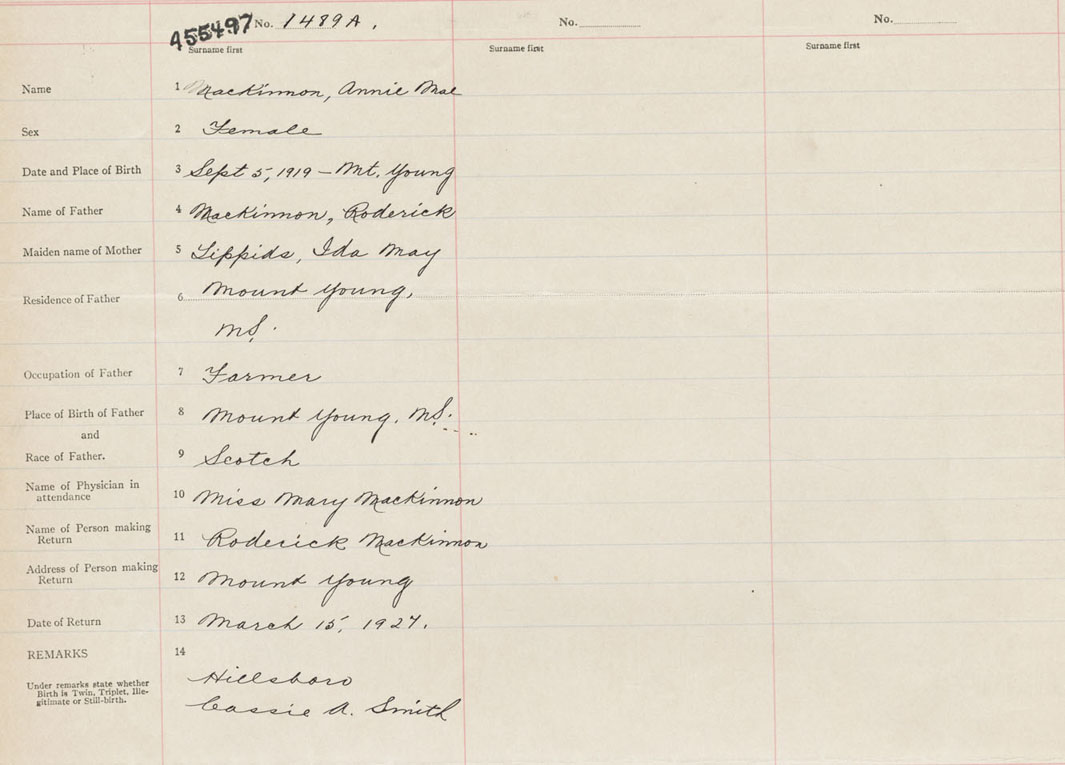 455497 No. 1489A. No. No.
Surname first Surname first Surname first
Name 1 MacKinnon, Annie Mae
Sex 2 Female
Date and Place of Birth 3 Sept 5, 1919 – Mt. Young
Name of Father 4 MacKinnon, Roderick
Maiden name of Mother 5 Lippids, Ida May
Residence of Father 6 Mount Young,
NS.
Occupation of Father 7 Farmer
Place of Birth of Father 8 Mount Young, NS.
and
Race of Father. 9 Scotch
Name of Physician in
attendance 10 Miss Mary MacKinnon
Name of Person making
Return 11 Roderick MacKinnon
Address of Person making
Return 12 Mount Young
Date of Return 13 March 15, 1927.
REMARKS 14
Under remarks state whether
Birth is Twin, Triplet, Ille-
gitimate or Still-birth.
Hillsboro
Cassie A. Smith